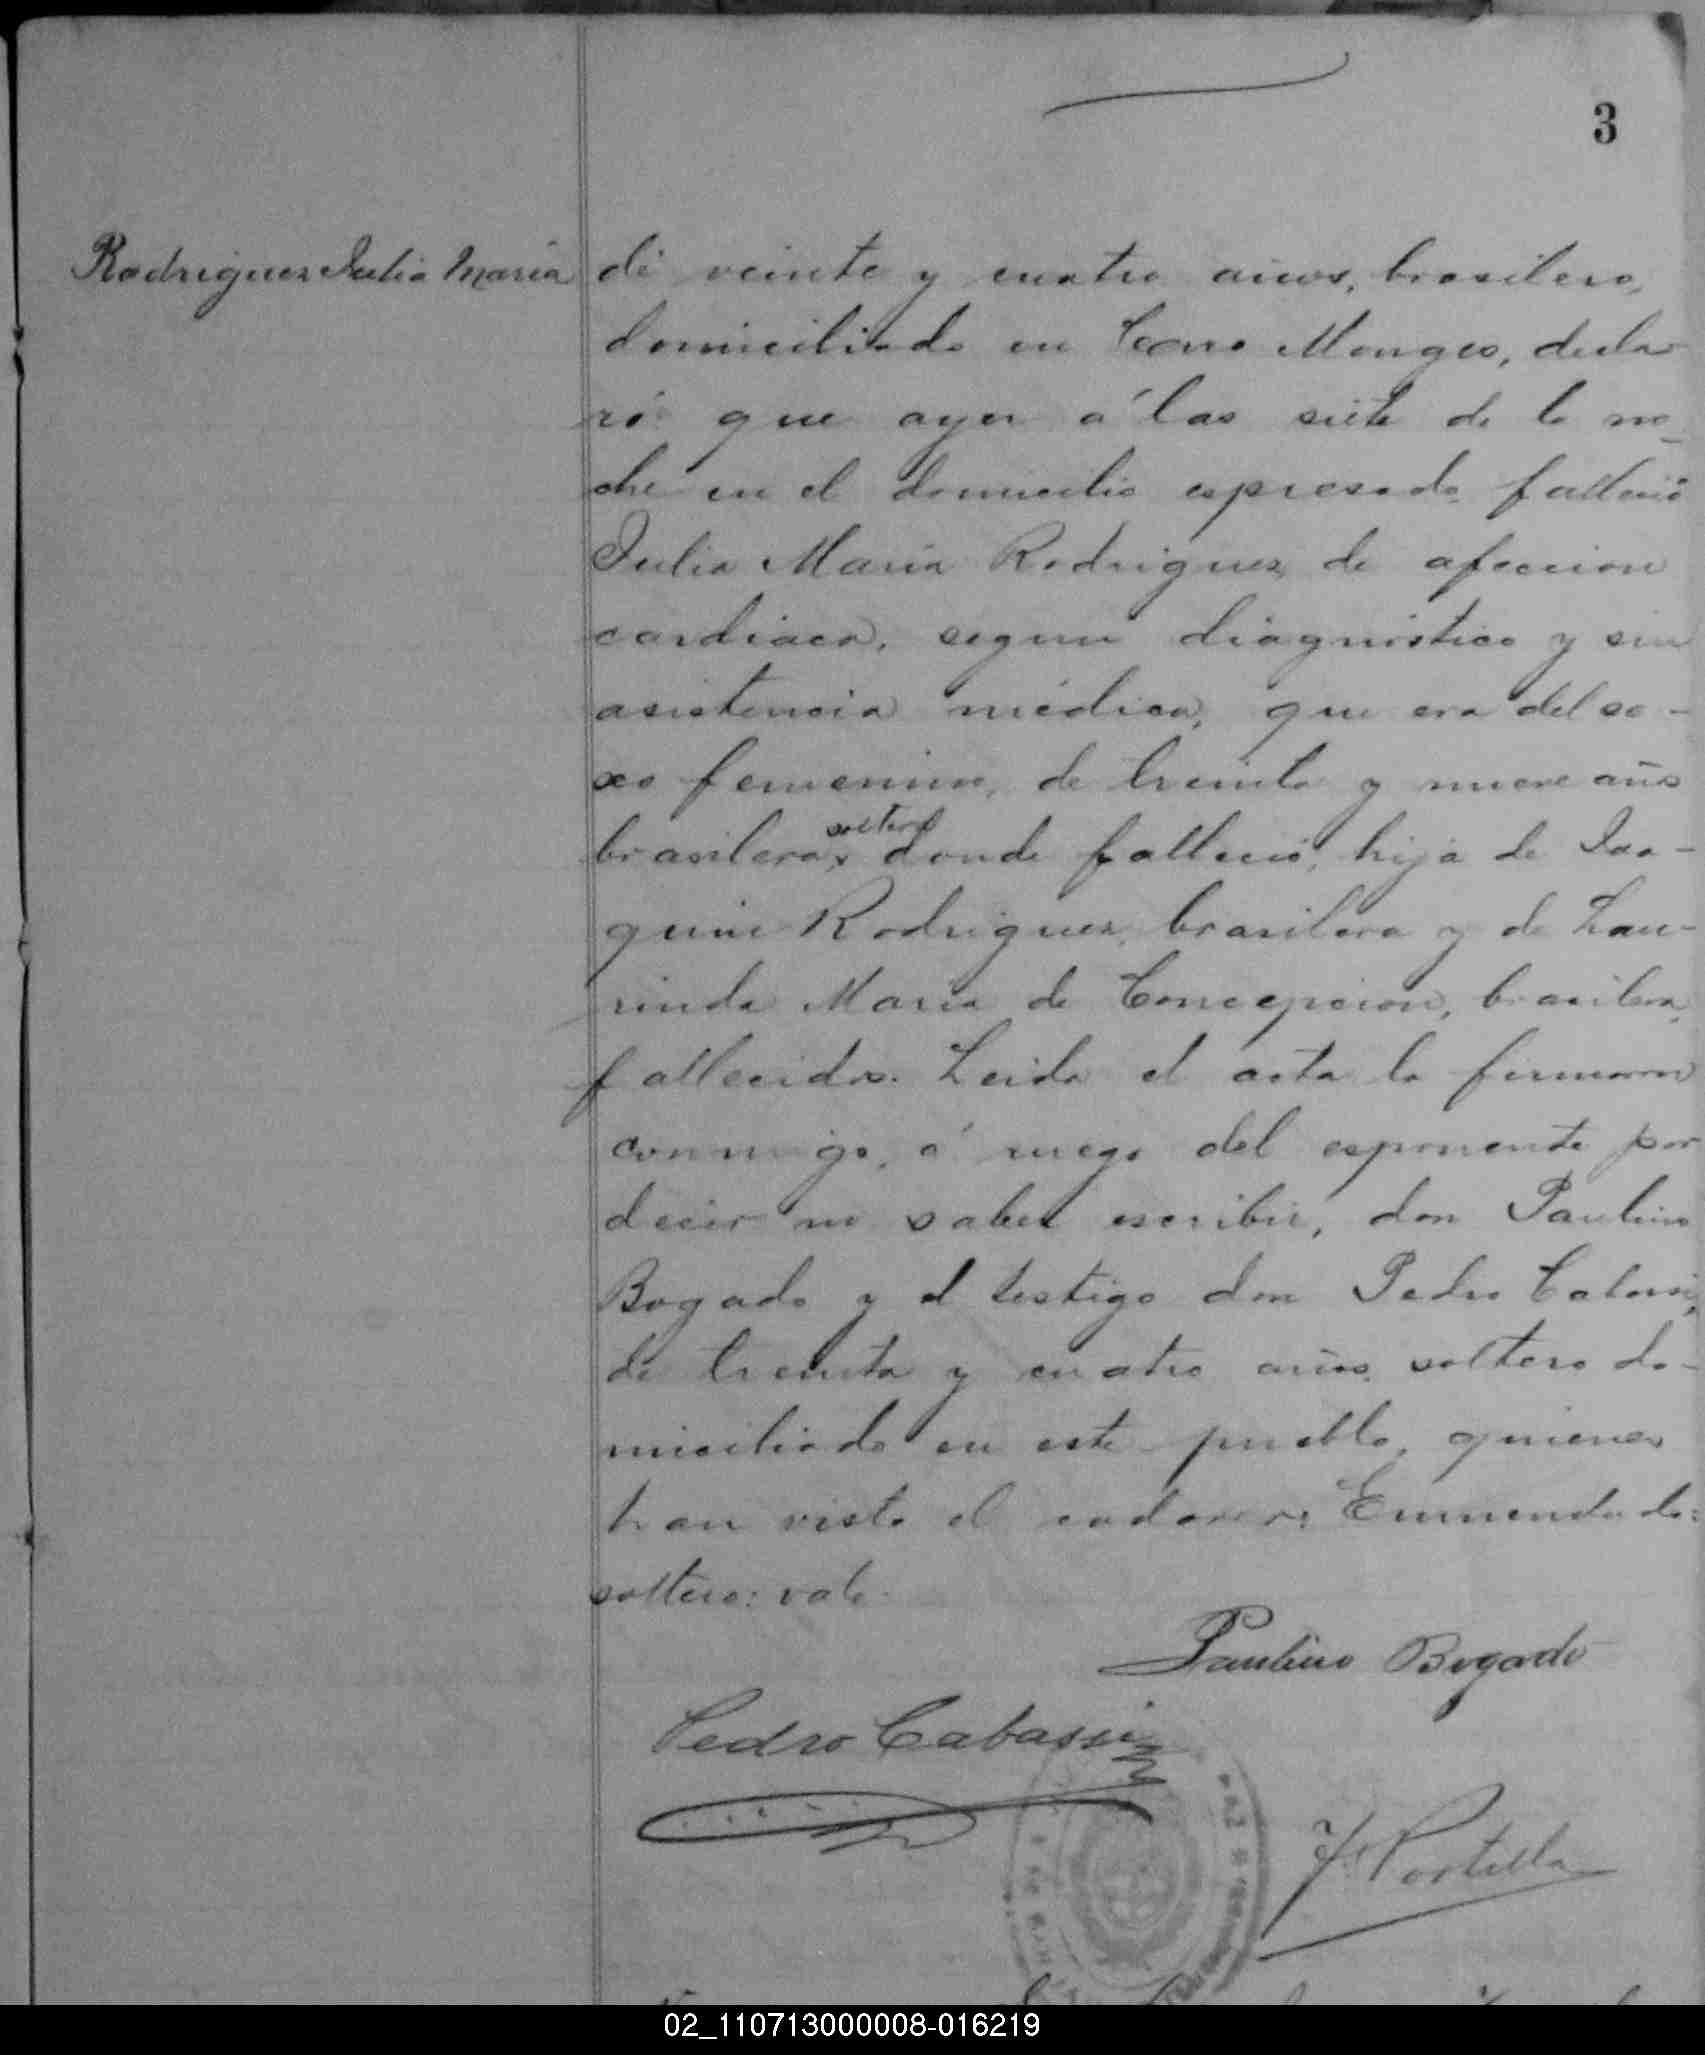 3
Rodriguez Julia Maria
de veinte y cuatro años, brasilero,
domiciliado en Cerro Monges, decla-
ró que ayer á las siete de la no-
che en el domicilio espresado falleció
Julia Maria Rodriguez, de afeccion
cardiaca, segun diagnostico y sin
asistencia médica, que era del se-
xo femenino, de treinta y nueve años
brasilera, soltera donde falleció, hija de Joa-
quin Rodriguez, brasilero y de Lau-
rinda Maria de Concepcion, brasilera,
fallecidos. Leida el acta la firmaron
conmigo, á ruego del esponente por
decir no saber escribir, don Paulino
Bogado y el testigo don Pedro Cabassi,
de treinta y cuatro años, soltero do-
miciliado en este pueblo, quienes
han visto el cadaver: Enmendado:
soltero: vale.
Paulino Bogado
Pedro Cabassi
Portella
02_110713000008-016219